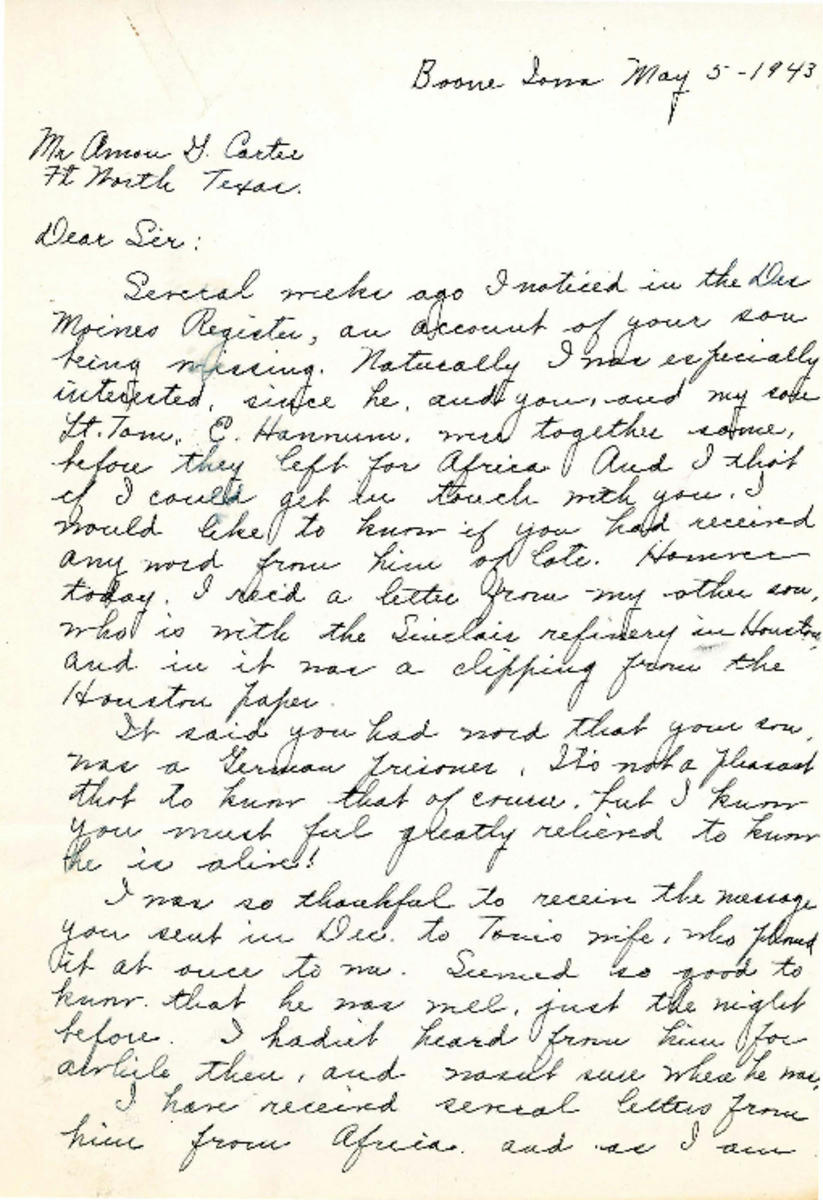 Boone Iowa May 5-1943
Mr Amon G. Carter
Ft Worth Texas.
Dear Sir:
Several weeks ago I noticed in the Des
Moines Register, an account of your son
being missing. Naturally I was especially
interested, since he, and you, and my son
Lt. Tom, E. Hannum, were together some,
before they left for Africa. And I that
if I could get in touch with you. I
would like to know if you had received
any word from him of late. However
today. I rec'd a letter from my other son,
who is with the Sinclair refinery in Houston,
and in it was a clipping from the
Houston paper.
It said you had word that your son,
was a German prisoner. It's not a pleasant
thot to know that of course, but I know
you must feel greatly relieved to know
he is alive!
I was so thankful to receive the message
you sent in Dec. to Tom's wife, who phoned
it at once to me. Seemed so good to
know that he was well, just the night
before. I hadn't heard from him for
awhile then, and wasn't sure where he was.
I have received several letters from
him from Africa. and as I am